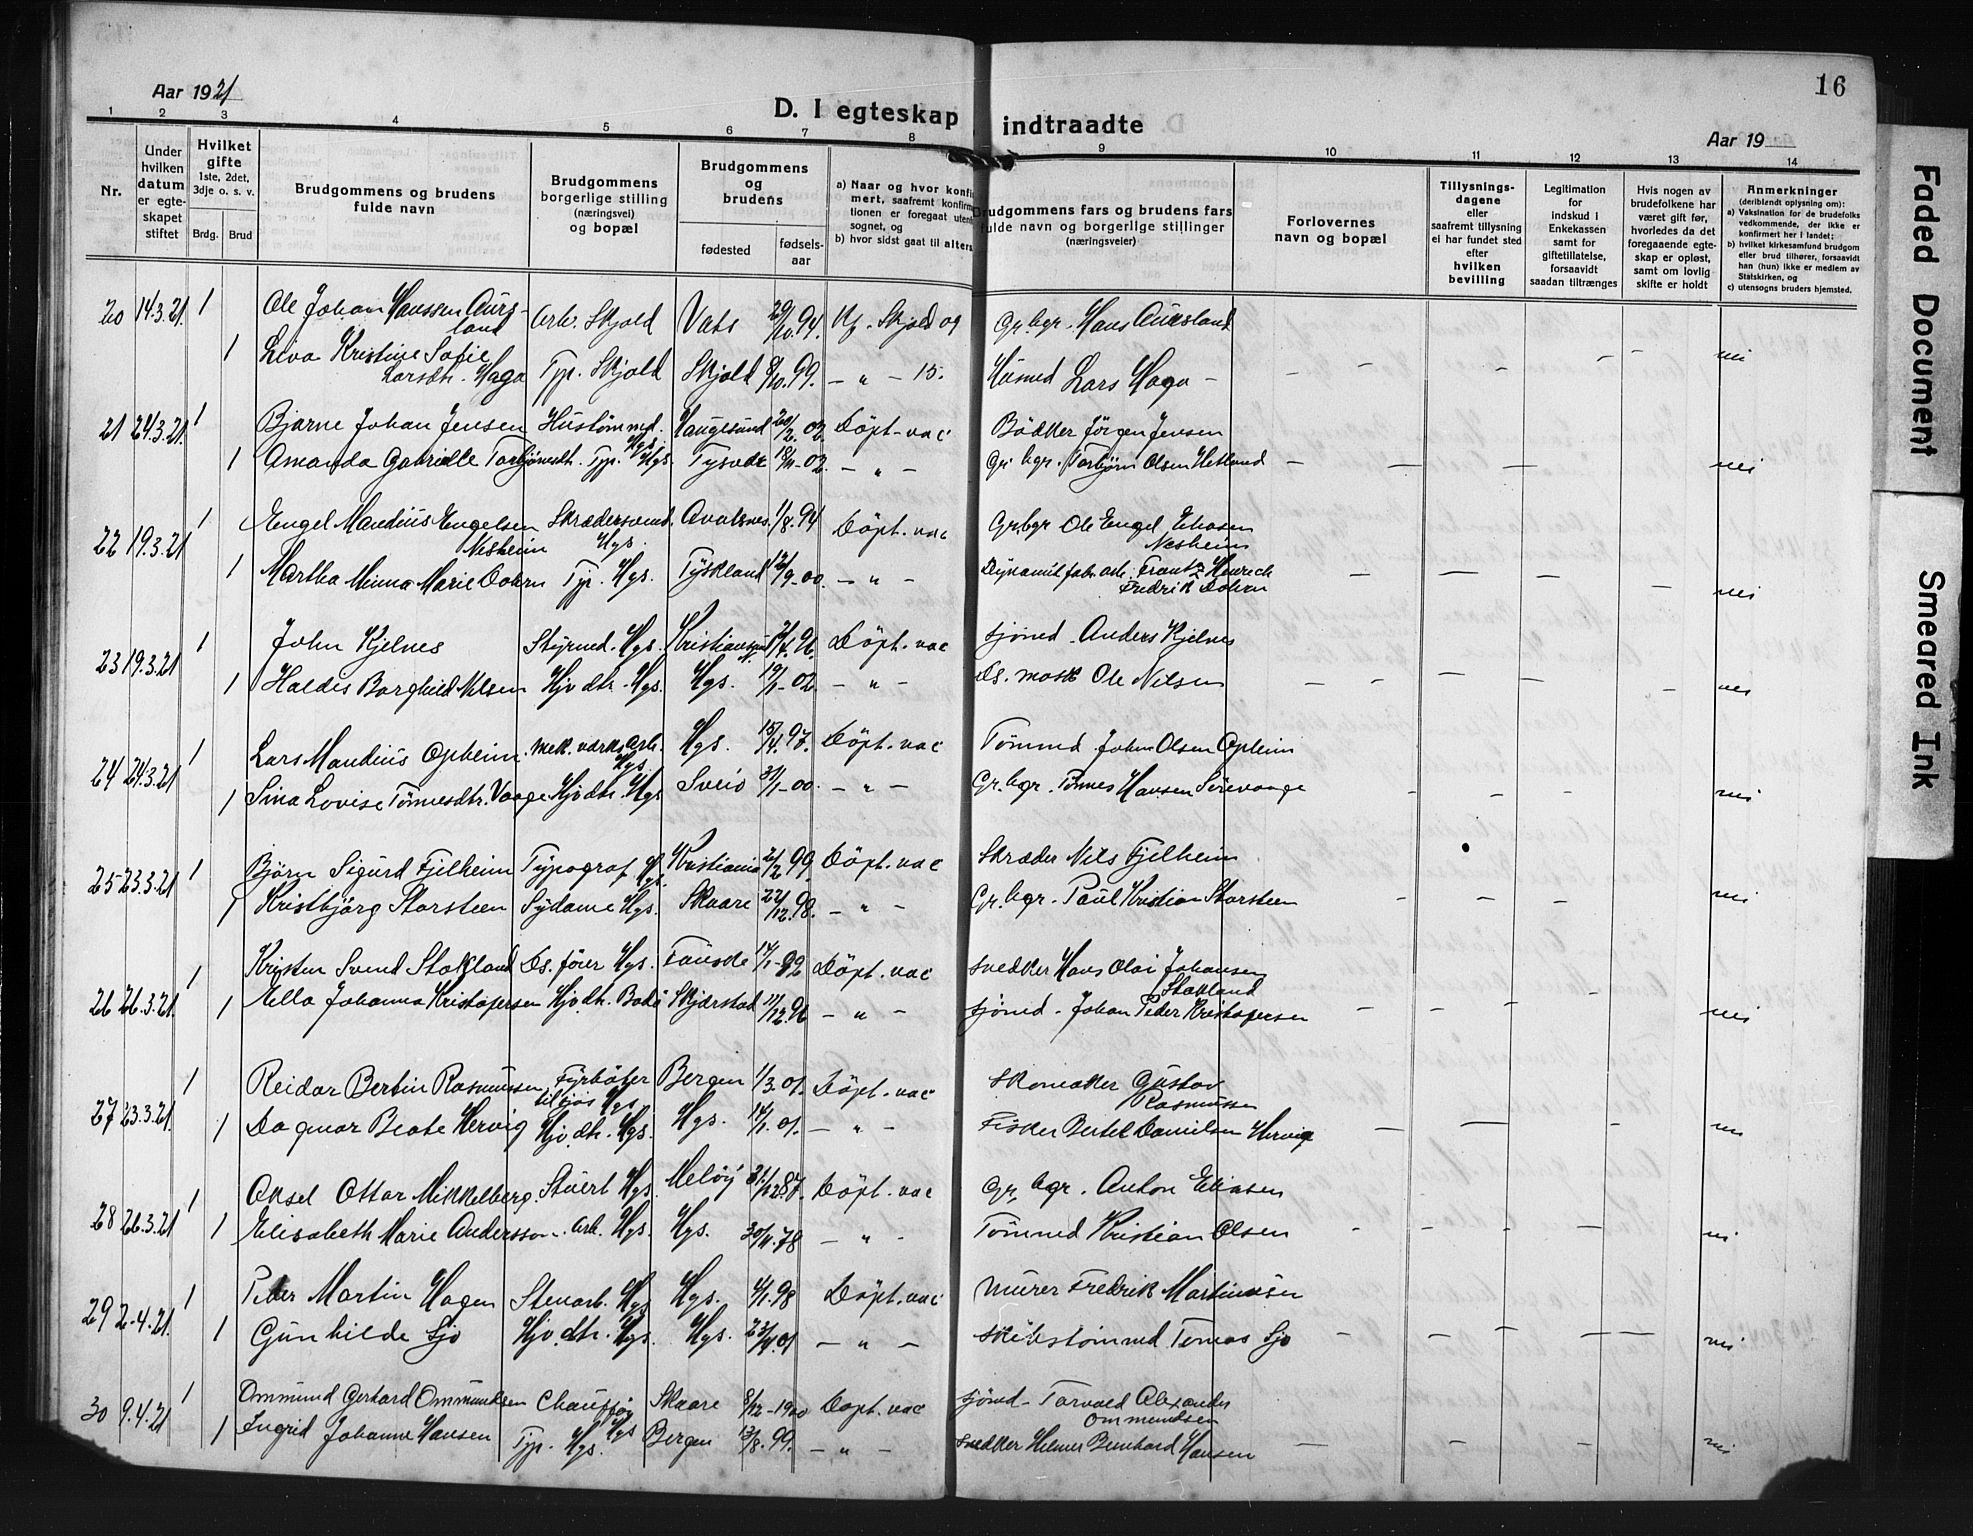 Aar 1921
D. I egteskap indtraadte
16
Aar 19
1 2 3 4 5 6 7 8 9 10 11 12 13 14
Nr.
Under hvilken datum er egteskapet stiftet
Hvilket gifte 1ste, 2det, 3dje o. s. v.
Brdg. Brud
Brudgommens og brudens fulde navn
Brudgommens borgerlige stilling (næringsvei) og bopæl
Brudgommens og brudens
fødested fødselsaar
a) Naar og hvor konfir
mert, saafremt konfirma
tionen er foregaat utenfor
sognet, og
b) hvor sidst gaat til alters
udgommens fars og brudens fars
fulde navn og borgerlige stillinger
(næringsveier)
Forlovernes navn og bopæl
Tillysningsdagene eller saafremt tillysning ei har fundet sted efter hvilken bevilling
Legitimation for indskud i Enkekassen samt for giftetillatelse, forsaavidt saadan tiltrænges
Hvis nogen av brudefolkene har været gift før, hvorledes da det foregaaende egteskap er opløst, samt om lovlig skifte er holdt
Anmerkninger
(deriblandt oplysning om):
a) Vaksination for de brudefolks vedkommende, der ikke er konfirmert her i landet;
b) hvilket kirkesamfund brudgom eller brud tilhører, forsaavidt han (hun) ikke er medlem av Statskirken, og
c) utensogns bruders hjemsted.
20 14.3.21. 1 Ole Johan Hanssen Aursland Arb. Skjold Vats 29/10.94. Kf. Skjold og Gr.bgr. Hans Aursland
1 Liva Kristine Sofie Larsdtr. Haga Typ. Skjold Skjold 8/10.99. — " — 15. Husmd Lars Haga — nei
21 24.3.21. 1 Bjarne Johan Jensen Hustømmd. Hgs. Haugesund 20/2.02. Döpt - vac Bödker Jörgen Jensen
1 Amanda Gabrielle Torbjörnsdtr. Typ. Hgs. Tysvær 18/11-02. — " — Gr. bgr. Torbjörn Olsen Hetland nei
22 19.3.21 1 Engel Mandius Engelsen Nesheim Skrædersvend Hgs. Avalsnes. 1/8.94 Döpt. vac Gr.bgr Ole Engel Eliasen Nesheim
1 Martha Minna Marie Dohrn Typ. Hgs. Tyskland 12/9-00. — " — Dynamitfabr.arb. Frantz Henrich Fredrik Dohrn nei
23 19.3.21 1 John Kjelnes Styrmd. Hgs. Kristiansund 96. Döpt. vac sjömd. Anders Kjelnes
1 Haldis Borghild Nilsen Hjv.dtr. Hgs. Hgs. 19/1-02. — " — Ds. mask Ole Nilsen nei
24 24.3.21 1 Lars Mandius Opheim mek. værks.arb. Hgs. Hgs. 15/4.97. Döpt. vac Tömmd. John Olsen Opheim
1 Sina Lovise Tönnesdtr. Vaage Hjv.dtr. Hgs Sveio 31/1-00. — " — Gr. bgr. Tönnes Hansen Sörevaage nei
25 23.3.21 1 Björn Sigurd Fjelheim Typograf Hgs. Kristiania 2/2 99 Döpt. vac Skræder Nils Fjelheim
1 Kristbjörg Storsteen Sydame Hgs. Skaare 22/12.98. — " — Gr. bgr. Paul Kristian Storsteen nei
26 26.3.21. 1 Kristen Svend Stokland Ds. föier Hgs. Fauske 14/1-92 Döpt. vac snedker Hans Olai Johansen Stokland
1 Ella Johanna Kristofersen Hjv.dtr. Bodö Skjærstad 11/12.96 — " — sjömd - Johan Peder Kristofersen nei
27 23.3.21. 1 Reidar Bertin Rasmussen Fyrböter tilsjös Hgs. Bergen 1/3.01. Döpt. vac Skomaker Gustav Rasmussen
1 Dagmar Beate Hervig Hjv.dtr. Hgs. Hgs. 14/1.01. — " — Fisker Bertel Danielsen Hervig nei
28 26.3.21 1 Aksel Ottar Mikkelberg. Stuert Hgs. Melöy 31/12 87. Döpt. vac Gr. bgr. Anton Eliasen
1 Elisabeth Marie Andersson. Arb. Hgs. Hgs. 30/11.78 — " — Tömmd Kristian Olsen nei
29 2.4.21. 1 Peder Martin Hagen Stenarb. Hgs Hgs. 4/1.98 Döpt. vac Murer Fredrik Martinsen
1 Gunhilde Sjo Hjv.dtr. Hgs. Hgs. 23/9.01 — " — skibstömmd Tomas Sjo nei
30 9.4.21 1 Ommund Gerhard Ommundsen Chaufför Hgs Skaare 8/12-1900 Döpt. vac sjömd - Torvald Alexander Ommundsen
1 Ingrid Johanne Hansen Typ. Hgs. Bergen 13/8.99. — " — snedker Helmer Bernhard Hansen nei
Faded Document
Smeared Ink